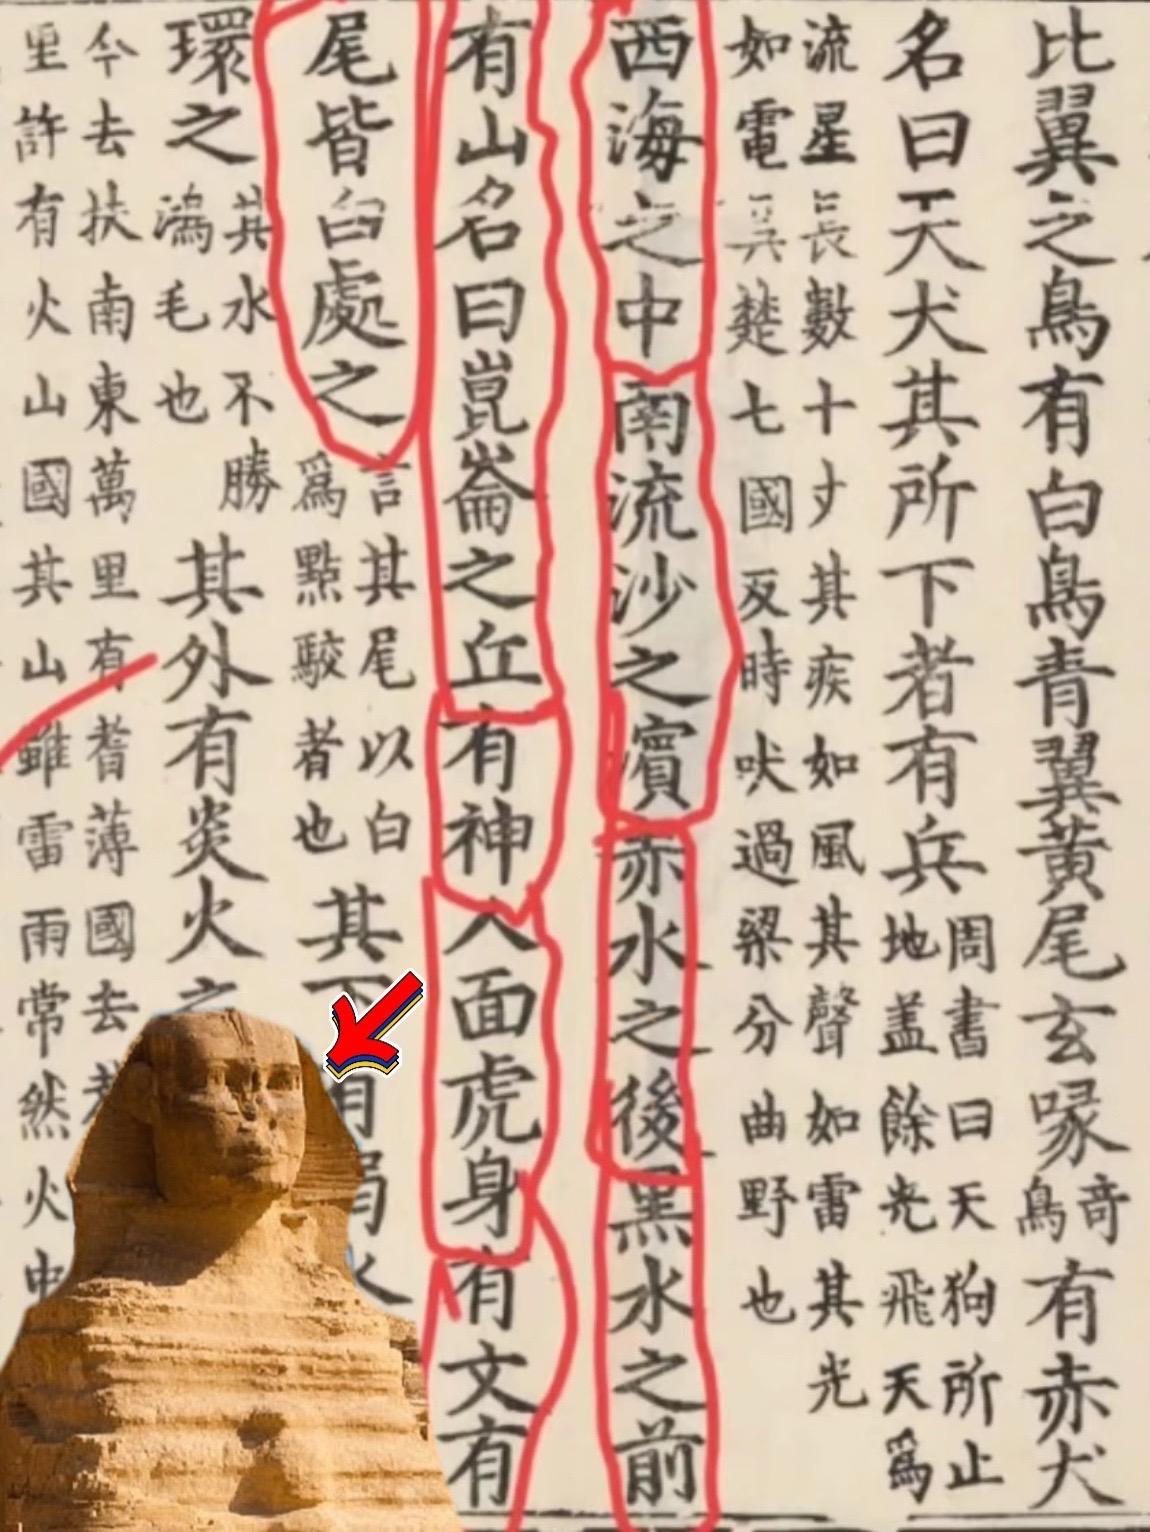 比翼之鳥有白鳥青翼黃尾玄喙
奇
鳥
有赤犬
名曰天犬其所下者有兵
周書曰天狗所止
地盖餘光飛天爲
流星長數十丈其疾如風其聲如雷其光
如電吳楚七國反時吠過梁分曲野也
西海之中南流沙之濵赤水之後黑水之前
有山名曰崑崙之丘有神人面虎身有文有
尾皆白處之
言其尾以白
爲點駮者也
其下有弱水
環之
其水不勝
鴻毛也
其外有炎火之
今去扶南東萬里有耆薄國去
里許有火山國其山雖雷雨常然火中